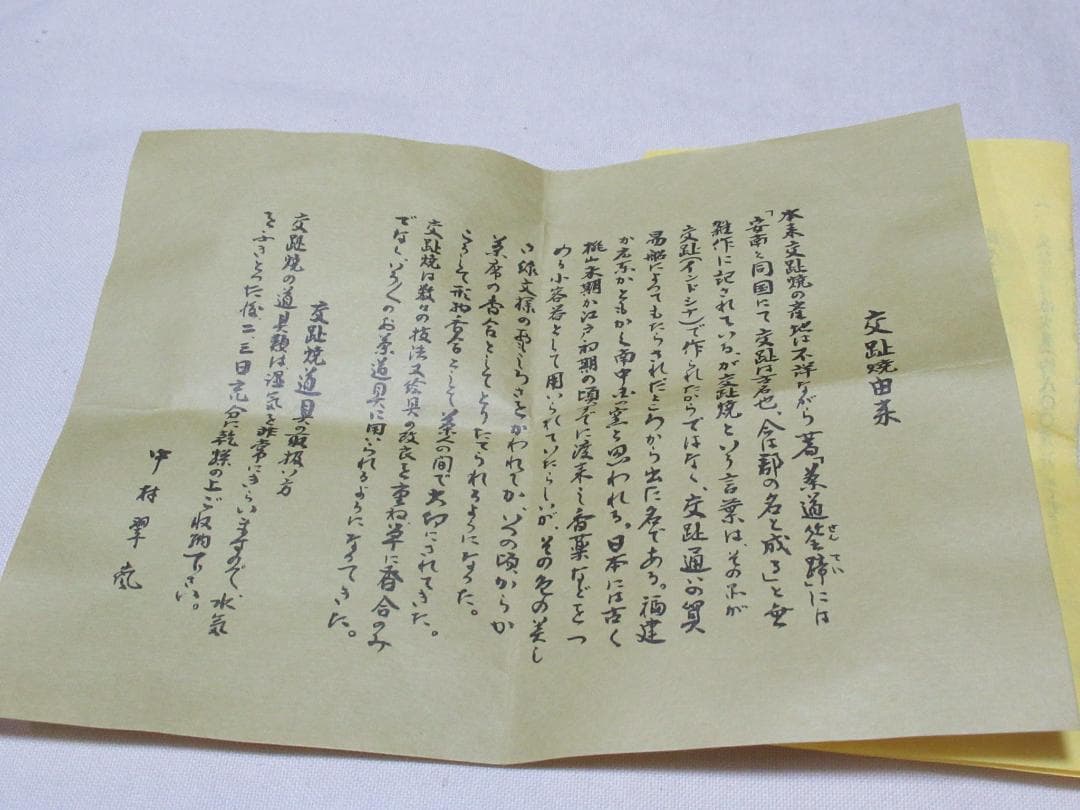 交趾焼由来
本来交趾焼の産地は不詳ながら一書「茶道筌蹄」には
せんてい
「安南と同国にて交趾は古名也、今は郡の名と成る」と無
雑作に記されている、が交趾焼という言葉は、その品が
交趾(インドシナ)で作られたからではなく、交趾通いの貿
易船によってもたらされたところから出た名である。福建
か広東かともかく南中国窯と思われる。日本には古く
桃山末期か江戸初期の頃までに渡来し香薬などをつ
める小容器として用いられていたらしいが、その色の美し
さ、緑文様の面しろさをかわれてか、いつの頃からか
茶席の香合としてとりたてられるようになった。
こうして形物香合として茶人の間で大切にされてきた。
交趾焼は数々の技法又絵具の改良を重ね、単に香合のみ
でなくいろ〱のお茶道具に用いられるようになってきた。
交趾焼道具の取扱い方
交趾焼の道具類は湿気を非常にきらいますので、水気
をふきとった後二、三日充分に乾燥の上ご収納下さい。
中村翠嵐